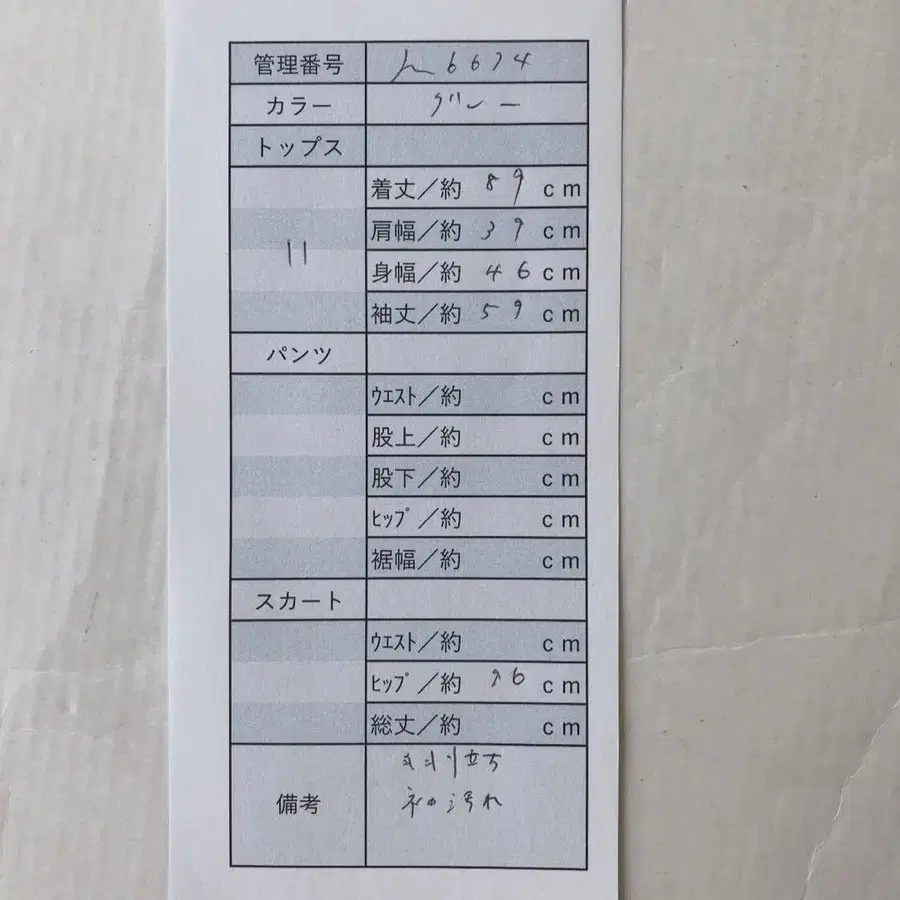 管理番号 h6674
カラー グレー
トップス
11
着丈／約 89 cm
肩幅／約 39 cm
身幅／約 46 cm
袖丈／約 59 cm
パンツ
ｳｴｽﾄ／約 cm
股上／約 cm
股下／約 cm
ﾋｯﾌﾟ／約 cm
裾幅／約 cm
スカート
ｳｴｽﾄ／約 cm
ﾋｯﾌﾟ／約 96 cm
総丈／約 cm
備考
毛羽立ち
袖汚れ